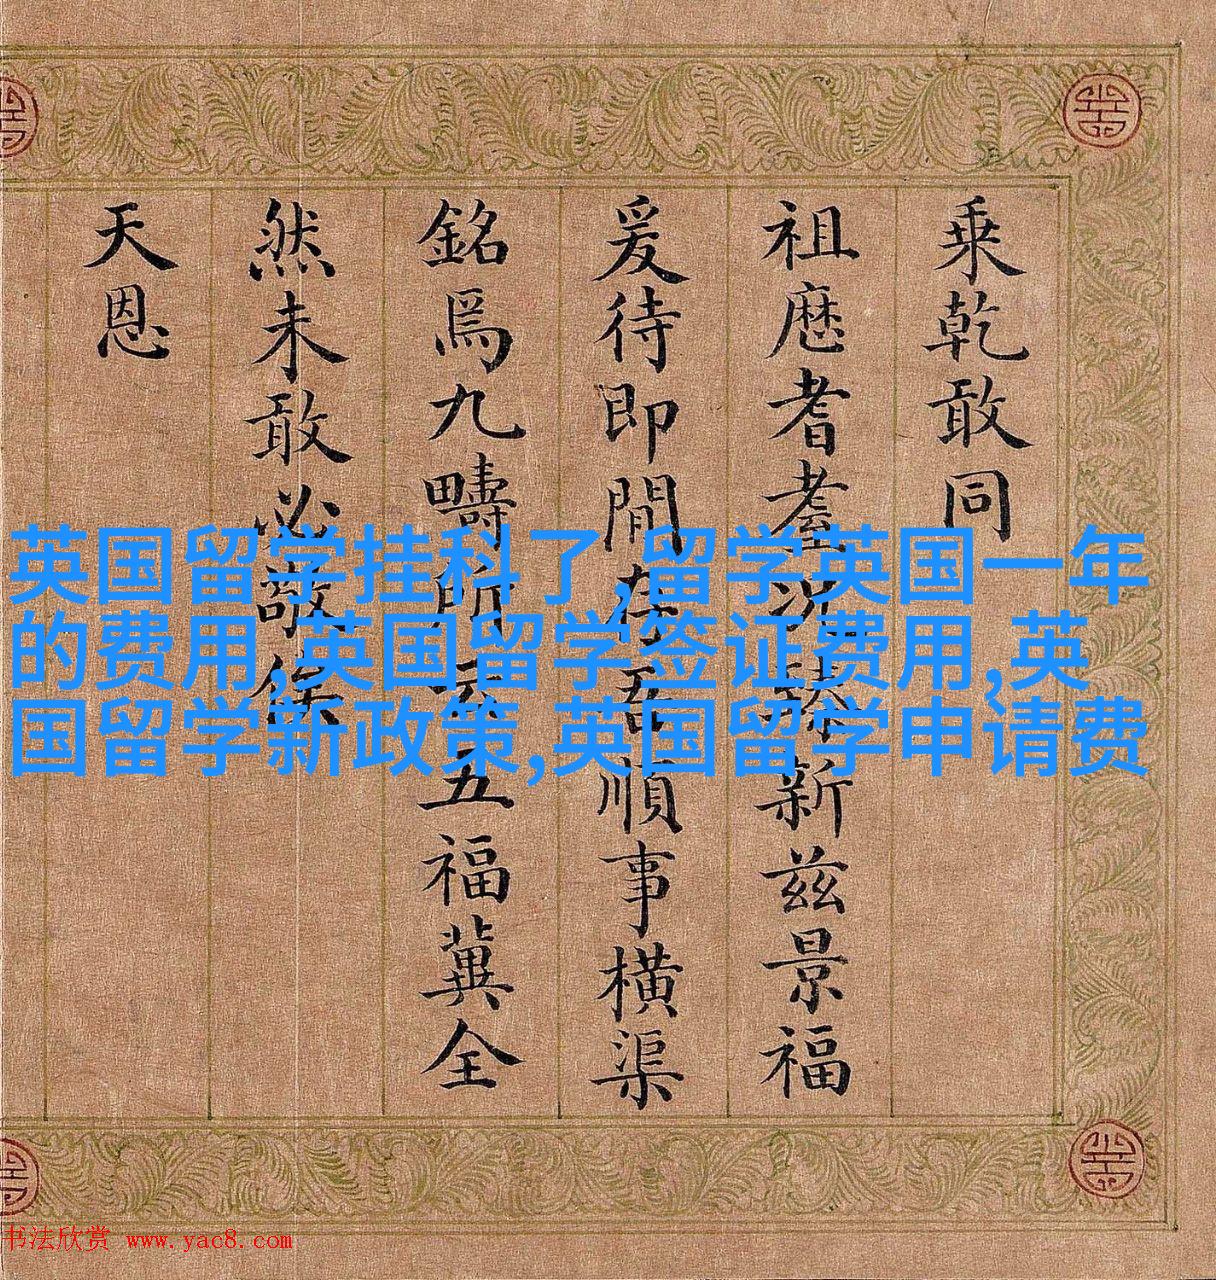 乗乾敢同
祖厯耆耋况臻新兹景福
爰待即間存吾順事横渠
銘爲九疇所云五福冀全
然未敢必敬俟
天恩
英国留学挂科了,留学英国一年
的费用,英国留学签证费用,英
国留学新政策,英国留学申请费
书法欣赏 www.yac8.com